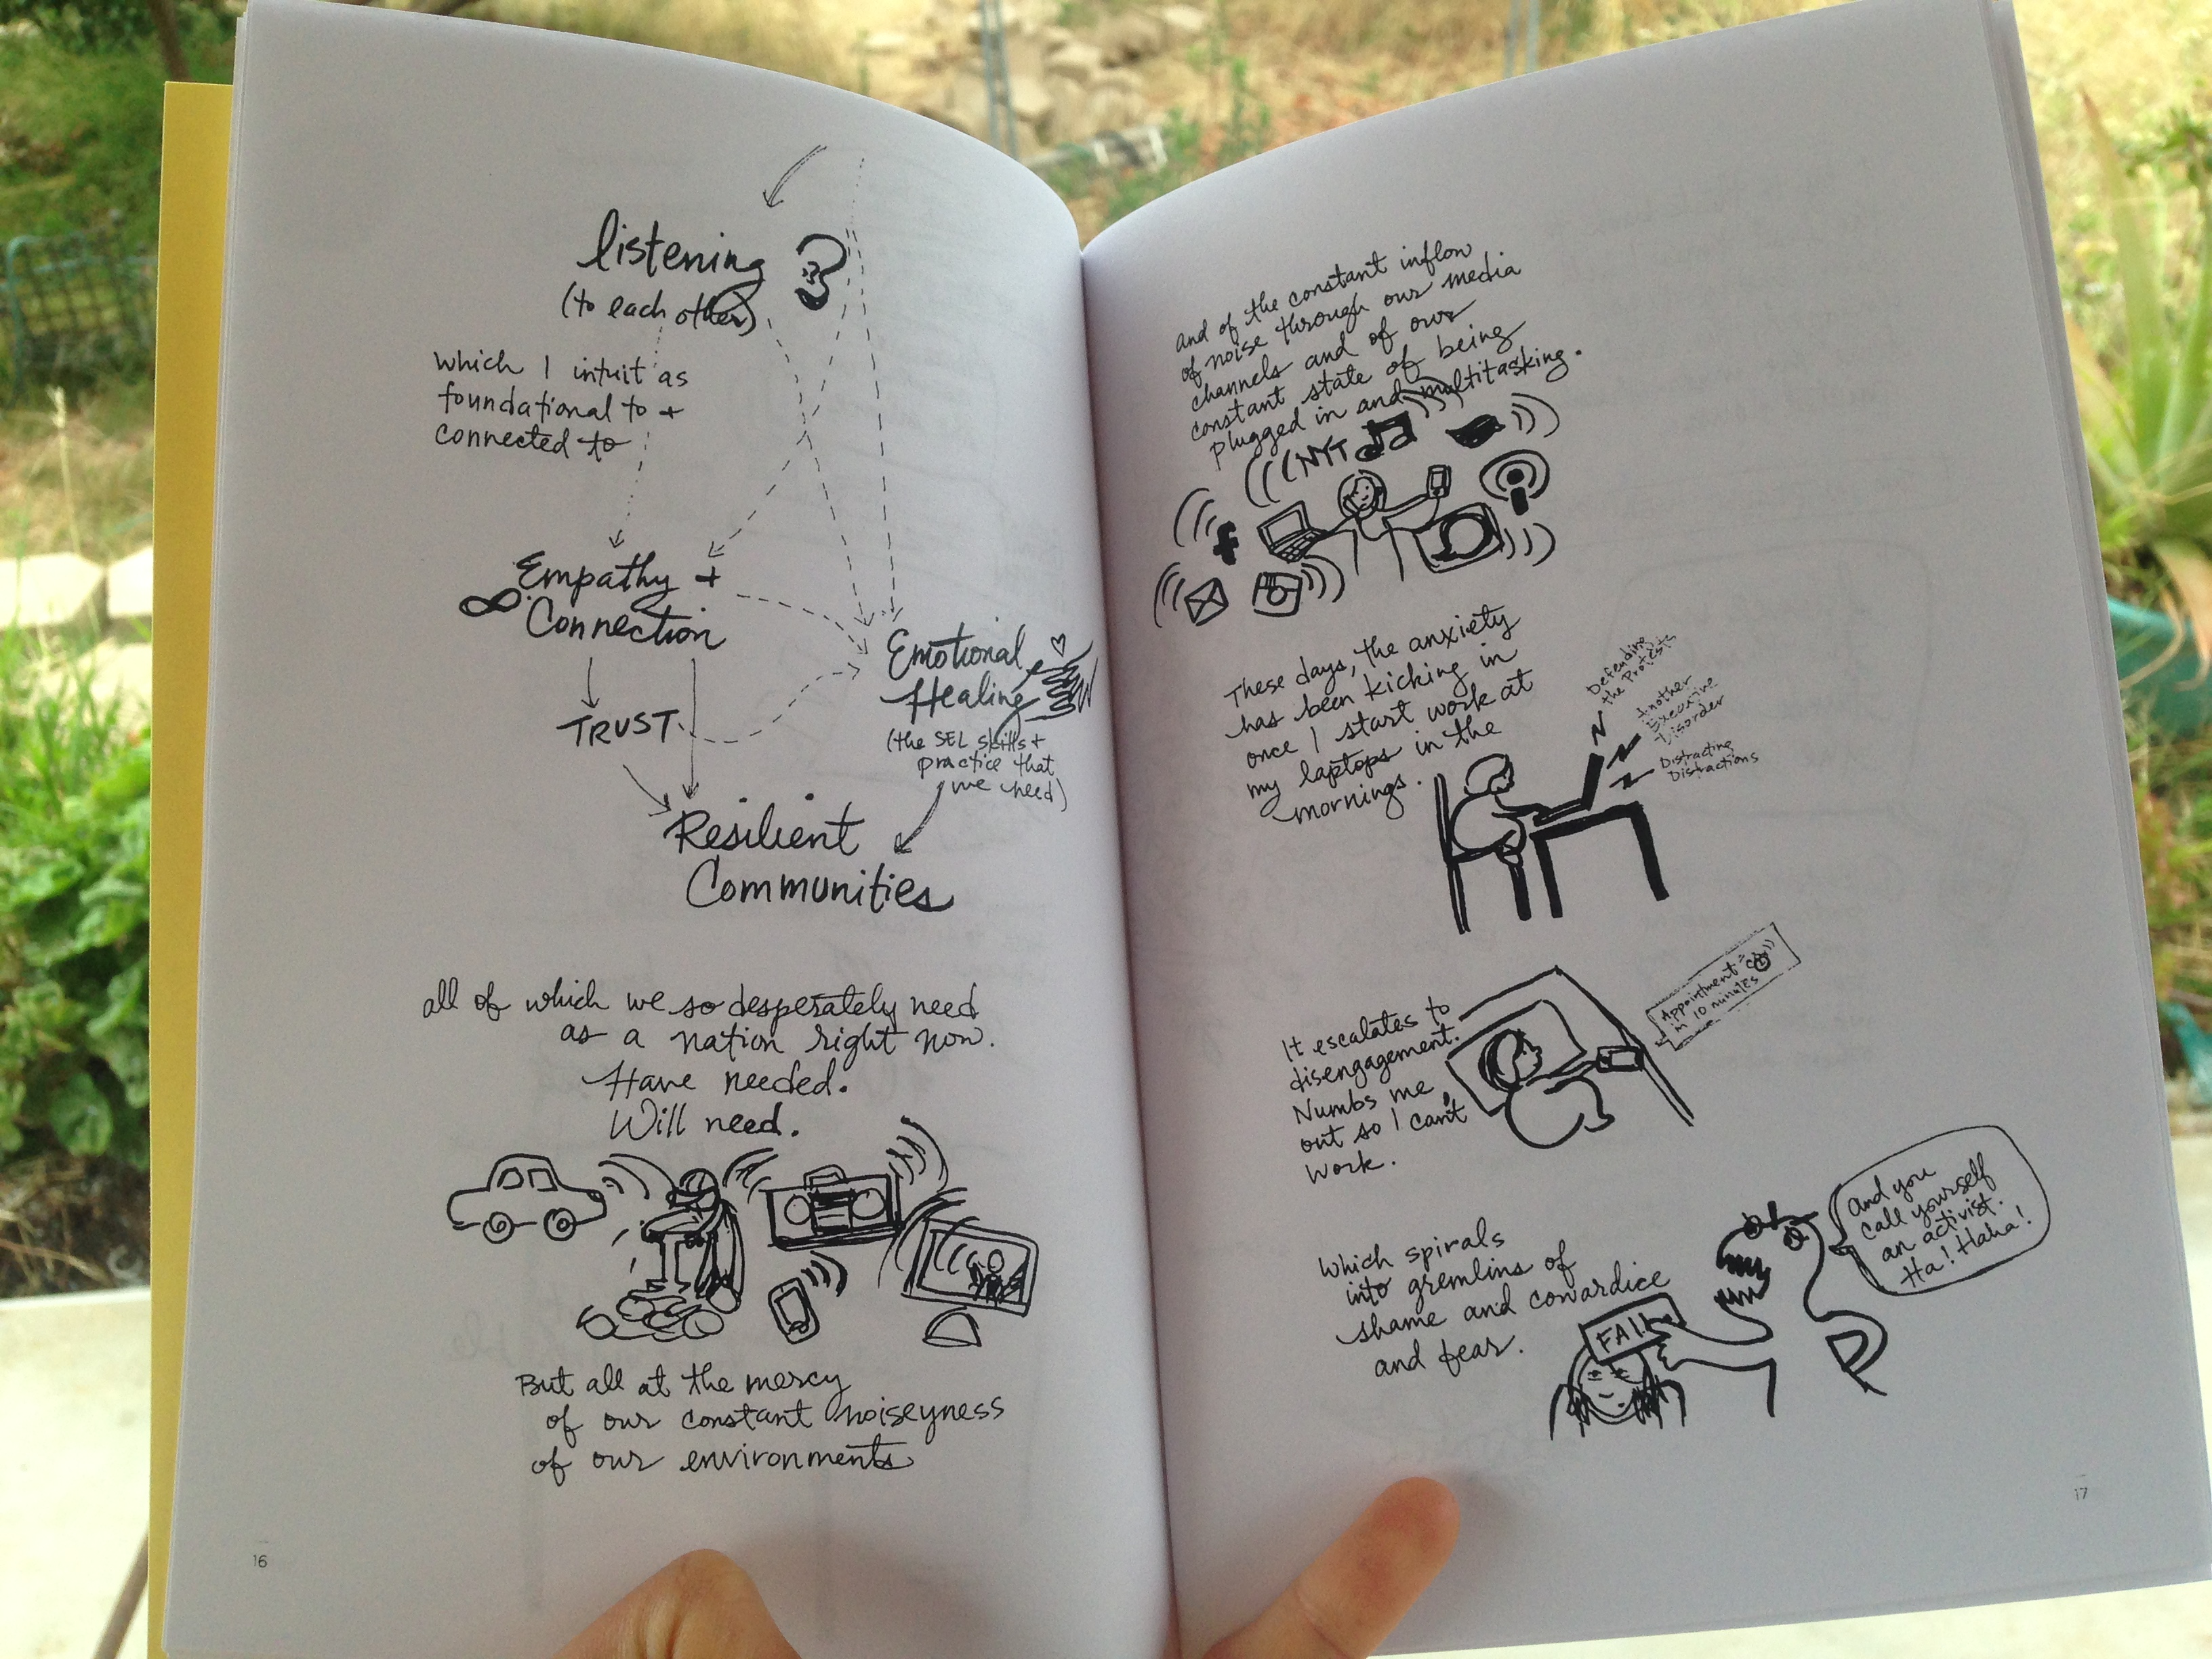 listening
(to each other)
which I intuit as
foundational to +
connected to
Empathy +
Connection
TRUST
Emotional
Healing
(the SEL skills +
practice that
we need)
Resilient
Communities
all of which we so desperately need
as a nation right now.
Have needed.
Will need.
But all at the mercy
of our constant noiseyness
of our environments
16
and of the constant inflow
of noise through our media
channels and of our
constant state of being
plugged in and multitasking.
NYT
f
These days, the anxiety
has been kicking in
once I start work at
my laptops in the
mornings.
Defending
the Protests
Another
Executive
Disorder
Distracting
Distractions
It escalates to
disengagement.
Numbs me
out so I can't
work.
Appointment
in 10 minutes
Which spirals
into gremlins of
shame and cowardice
and fear.
FAIL
And you
call yourself
an activist.
Ha! Haha!
17